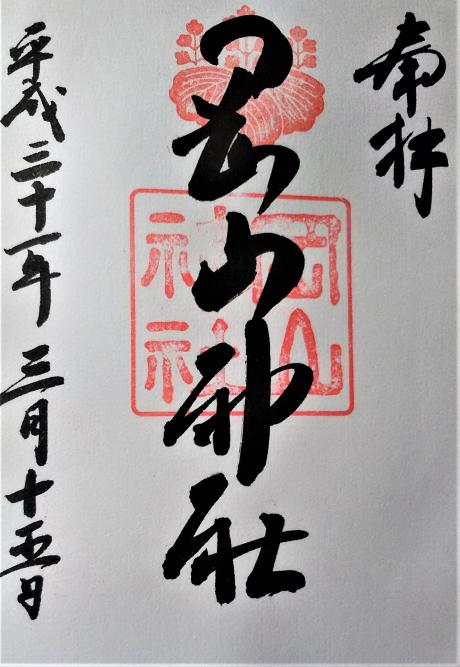 奉拝
岡山神社
岡山
神社
平成三十一年三月十五日